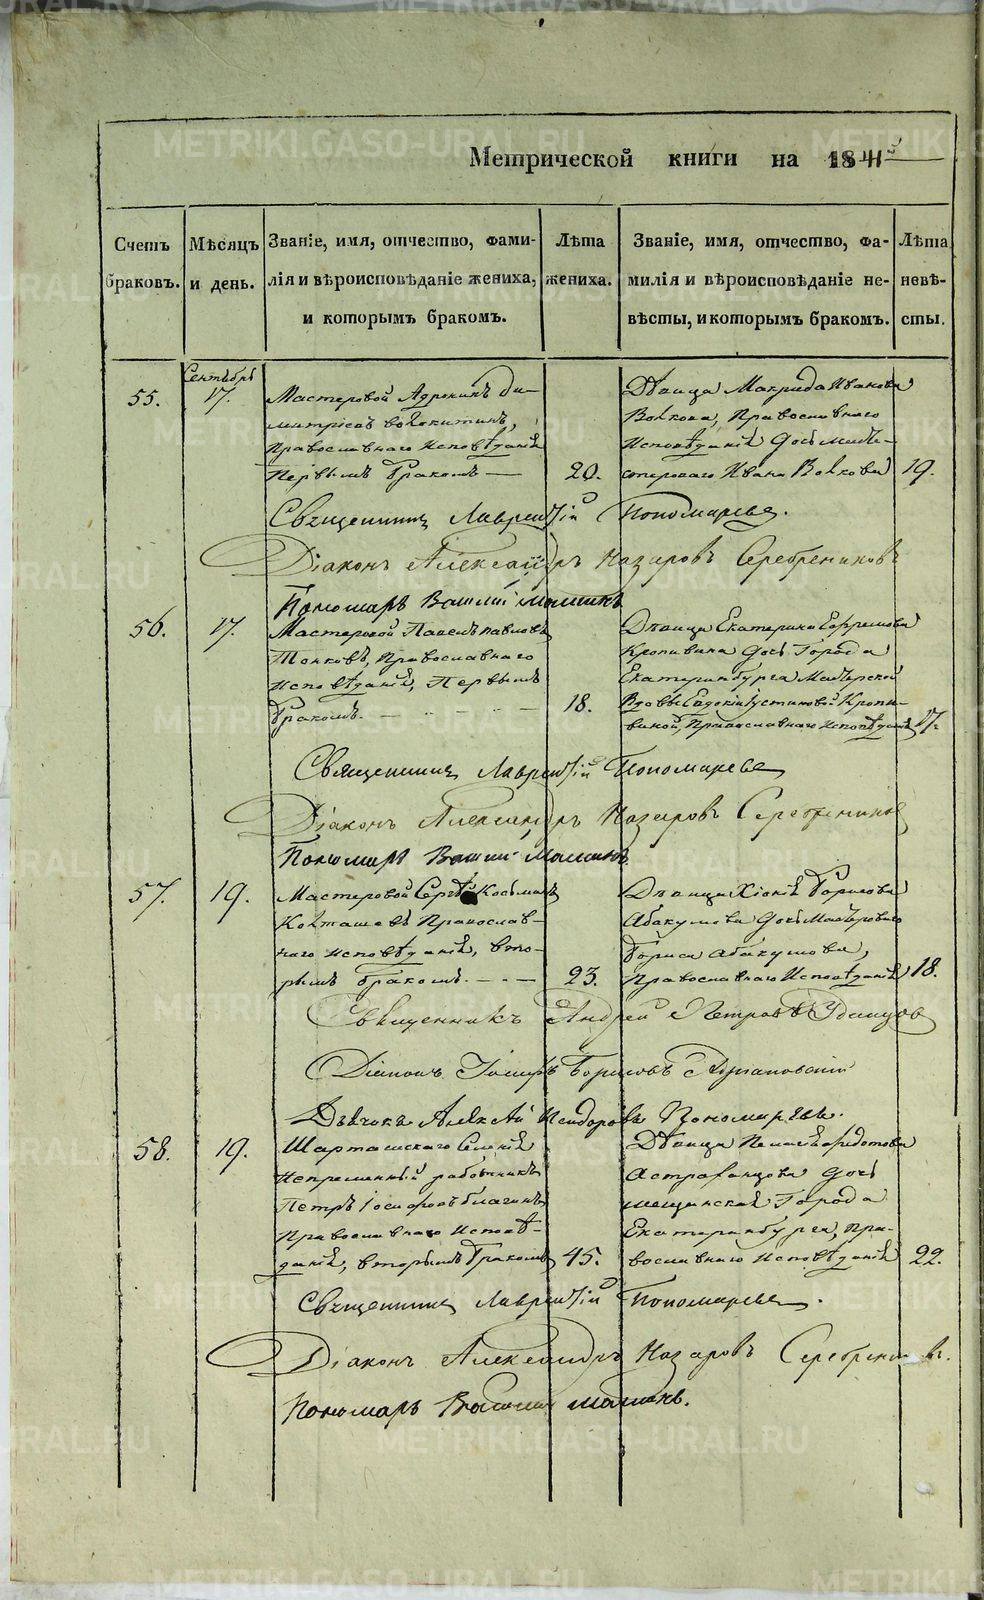 METRIKI.GASO-URAL.RU
Метрической книги на 1841й
Счетъ браковъ.
Мѣсяцъ и день.
Званіе, имя, отчество, фами-
лія и вѣроисповѣданіе жениха,
и которымъ бракомъ.
Лѣта жениха.
Званіе, имя, отчество, фа-
милія и вѣроисповѣданіе не-
вѣсты, и которымъ бракомъ.
Лѣта невѣ-
сты.
55.
Сентября
17.
Мастеровой Ди-
митріевъ
Православнаго Исповѣданія
Первымъ бракомъ —
20.
Дѣвица Макрида Иванова
Волкова, Православнаго
Исповѣданія Дочь
Ивана Волкова
19.
Священникъ Лаврентій Пономаревъ.
Діаконъ Александръ Назаровъ Серебрениковъ
Пономарь Василій
56.
17.
Мастеровой Павелъ Павловъ
Тонковъ, Православнаго
Исповѣданія, Первымъ
бракомъ. —
18.
Дѣвица Екатерина Ефремова
Кропивина Дочь Города
Екатеринбурга
Вдовы Евдокіи Устиновой Кропи-
виной, Православнаго Исповѣданія
17.
Священникъ Лаврентій Пономаревъ
Діаконъ Александръ Назаровъ Серебрениковъ
Пономарь Василій
57.
19.
Мастеровой Сергѣй Косьминъ
Православ-
наго Исповѣданія, Вто-
рымъ бракомъ. — — —
23.
Дѣвица Хіонія Борисова
Абакумова Дочь Мастероваго
Бориса Абакумова,
Православнаго Исповѣданія
18.
Священникъ Андрей Петровъ Удинцовъ
Діаконъ Борисовъ
Дьячокъ Алексѣй Исидоровъ Пономаревъ.
58.
19.
Шарташскаго Селенія
Непремѣнный работникъ
Петръ Іосифовъ
Православнаго Исповѣ-
данія, вторымъ бракомъ
45.
Дѣвица Пелагѣя Федотова
Астраханцова Дочь
мещанская Города
Екатеринбурга, Пра-
вославнаго Исповѣданія
22.
Священникъ Лаврентій Пономаревъ.
Діаконъ Александръ Назаровъ
Пономарь Василій